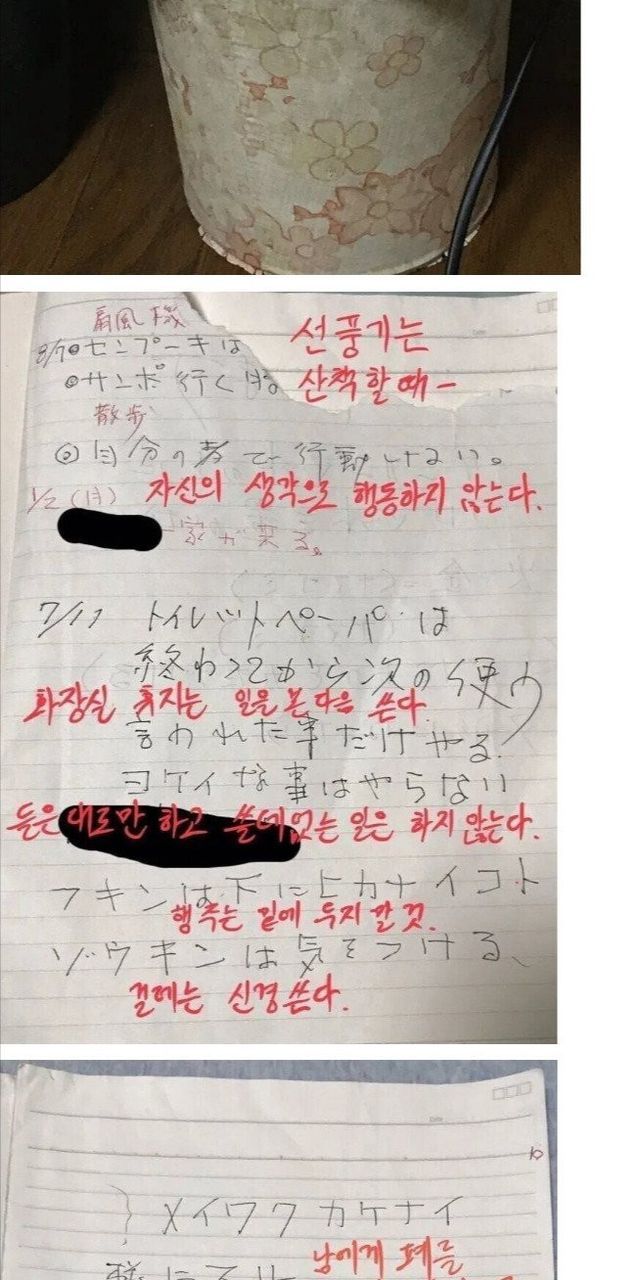 扇風機
선풍기는
8/7 ◎センプーキは
◎サンポ行く時
산책할 때-
散歩
◎自分の考で行動しない。
1/2(月)
자신의 생각으로 행동하지 않는다.
一家が来る。
7/17 トイレットペーパーは
終わってから次の使う
화장실 휴지는 일을 본 다음 쓴다.
言われた事だけやる。
ヨケイな事はやらない
듣은대로만 하고 쓸데없는 일은 하지 않는다.
フキンは下にヒカナイコト
행주는 밑에 두지 말 것.
ゾウキンは気をつける、
걸레는 신경쓴다.
メイワクカケナイ
남에게 폐를